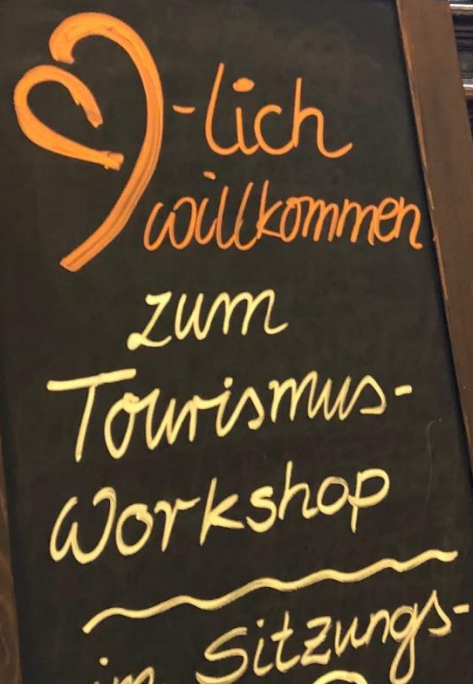 -lich
willkommen
zum
Tourismus-
Workshop
im Sitzungs-